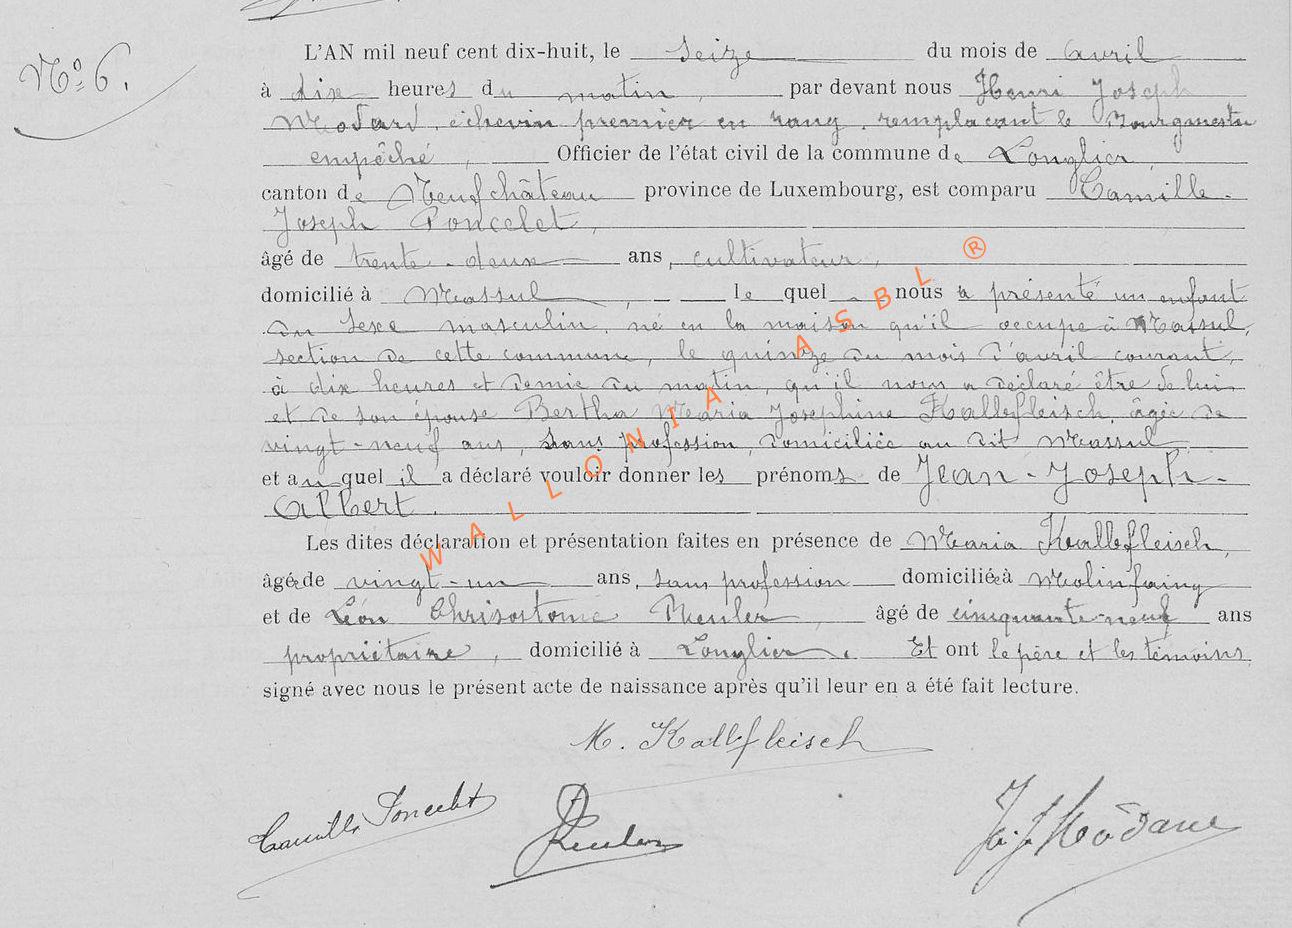 Nº 6.
L'AN mil neuf cent dix-huit, le seize du mois de avril
à dix heures du matin, par devant nous Henri Joseph
échevin premier en rang, remplaçant le Bourgmestre
empêché, Officier de l'état civil de la commune de Longlier,
canton de Neufchâteau province de Luxembourg, est comparu Camille-
Joseph Poncelet,
âgé de trente-deux ans, cultivateur,
domicilié à Massul, le quel nous a présenté un enfant
du sexe masculin, né en la maison qu'il occupe à Massul,
section de cette commune, le quinze du mois d'avril courant,
à dix heures et demie du matin, qu'il nous a déclaré être de lui
et de son épouse Bertha Maria Josephine Kallefleisch, âgée de
vingt-neuf ans, sans profession, domiciliée au dit Massul
et au quel il a déclaré vouloir donner les prénoms de Jean-Joseph-
Albert.
Les dites déclaration et présentation faites en présence de Maria Kallefleisch,
âgée de vingt-un ans, sans profession domiciliée à Molinfaing
et de Léon Chrisostome Reuler, âgé de cinquante-neuf ans
propriétaire, domicilié à Longlier. Et ont le père et les témoins
signé avec nous le présent acte de naissance après qu'il leur en a été fait lecture.
M. Kallefleisch
Camille Poncelet
Reuler
WALLONIA ASBL ®